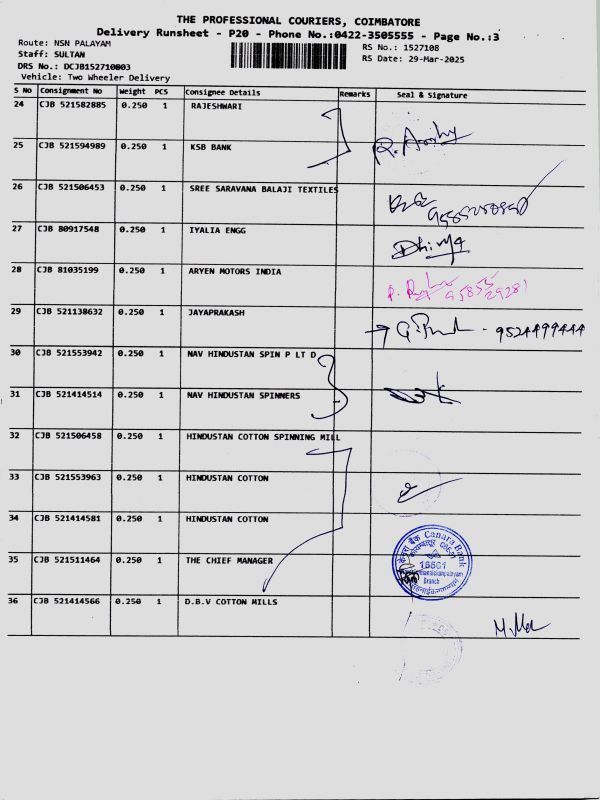 THE PROFESSIONAL COURIERS, COIMBATORE
Delivery Runsheet - P20 - Phone No.:0422-3505555 - Page No.:3
Route: NSN PALAYAM
RS No.: 1527108
Staff: SULTAN
RS Date: 29-Mar-2025
DRS No.: DCJB152710803
Vehicle: Two Wheeler Delivery
S No Consignment No Weight PCS Consignee Details Remarks Seal & Signature
24 CJB 521582885 0.250 1 RAJESHWARI
25 CJB 521594989 0.250 1 KSB BANK
26 CJB 521506453 0.250 1 SREE SARAVANA BALAJI TEXTILES
27 CJB 80917548 0.250 1 IYALIA ENGG
Dhivya
28 CJB 81035199 0.250 1 ARYEN MOTORS INDIA
95855
29281
29 CJB 521138632 0.250 1 JAYAPRAKASH
- 9524499444
30 CJB 521553942 0.250 1 NAV HINDUSTAN SPIN P LT D
31 CJB 521414514 0.250 1 NAV HINDUSTAN SPINNERS
32 CJB 521506458 0.250 1 HINDUSTAN COTTON SPINNING MILL
33 CJB 521553963 0.250 1 HINDUSTAN COTTON
34 CJB 521414581 0.250 1 HINDUSTAN COTTON
Canara Bank
35 CJB 521511464 0.250 1 THE CHIEF MANAGER
Branch
36 CJB 521414566 0.250 1 D.B.V COTTON MILLS